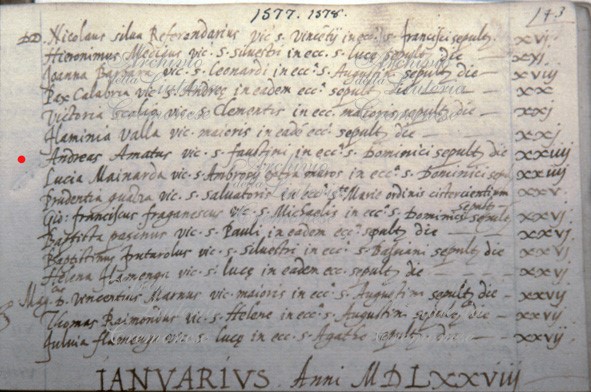 1577. 1578. 143
DD. Nicolaus silua Referendarius vic. s. Vincetij in ecc. s. francisci sepult. xvj
Hieronimus Mecijus vic. s. siluestri in ecc. s. lucę sepult die xvj
Joanna vic. s. Leonardi in ecc. s. Augustini sepult die xviij
Pax Calabria vic. s. Andreę in eadem ecc. sepult die xx
Victoria vic. s. Clementis in ecc. maioris sepult die xxj
flaminia Valla vic. maioris in eadē ecc. sepult die xxj
Andreas Amatus vic. s. faustini in ecc. s. Dominici sepult die xxiiij
Lucia Mainarda vic. s. Ambrosij extra muros in ecc. s. Dominici sep. xxiiij
Prudentia quadra vic. s. saluatoris in ecc. s. Marię ordinis cisterciensium sepult xxv
Gio: franciscus fraganescus vic. s. Michaelis in ecc. s. Dominici sepult xxvj
Baptista pasinus vic. s. Pauli in eadem ecc. sepult die xxvj
Baptistinus vic. s. siluestri in ecc. s. Bassiani sepult die xxvj
Helena flamenga vic. s. lucę in eadem ecc. sepult die xxvj
Mag. D. Vincentius Marnus vic. maioris in ecc. s. Augustini sepult die xxvij
Thomas Raimondus vic. s. Helenę in ecc. s. Augustini sepult die xxvij
fuluia flamenga vic. s. lucę in ecc. s. Agathę sepult die xxvij
IANVARIVS Anni MDLXXVIIJ